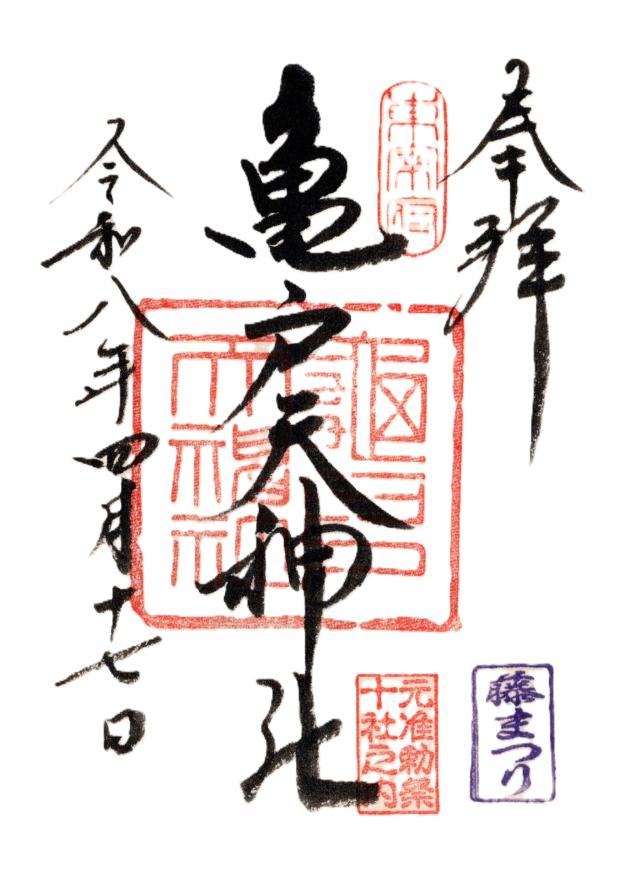 奉拝
東宰府
亀戸天神社
令和八年四月十七日
元准勅祭
十社之内
藤まつり